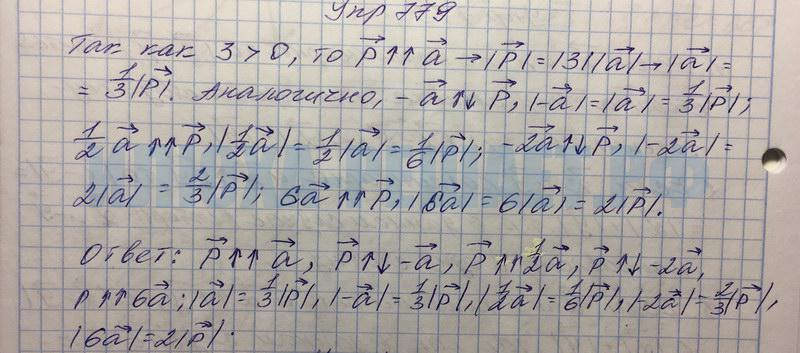 Упр 779
Так как 3 > 0, то p⃗ ↑↑ a⃗ → |p⃗| = |3||a⃗| → |a⃗| =
= 1/3|p⃗|. Аналогично, -a⃗ ↑↓ p⃗, |-a⃗| = |a⃗| = 1/3|p⃗|;
1/2 a⃗ ↑↑ p⃗, |1/2 a⃗| = 1/2|a⃗| = 1/6|p⃗|; -2a⃗ ↑↓ p⃗, |-2a⃗| =
2|a⃗| = 2/3|p⃗|; 6a⃗ ↑↑ p⃗, |6a⃗| = 6|a⃗| = 2|p⃗|.
Ответ: p⃗ ↑↑ a⃗, p⃗ ↑↓ -a⃗, p⃗ ↑↑ 1/2 a⃗, p⃗ ↑↓ -2a⃗,
p ↑↑ 6a⃗; |a⃗| = 1/3|p⃗|, |-a⃗| = 1/3|p⃗|, |1/2 a⃗| = 1/6|p⃗|, |-2a⃗| = 2/3|p⃗|,
|6a⃗| = 2|p⃗|.